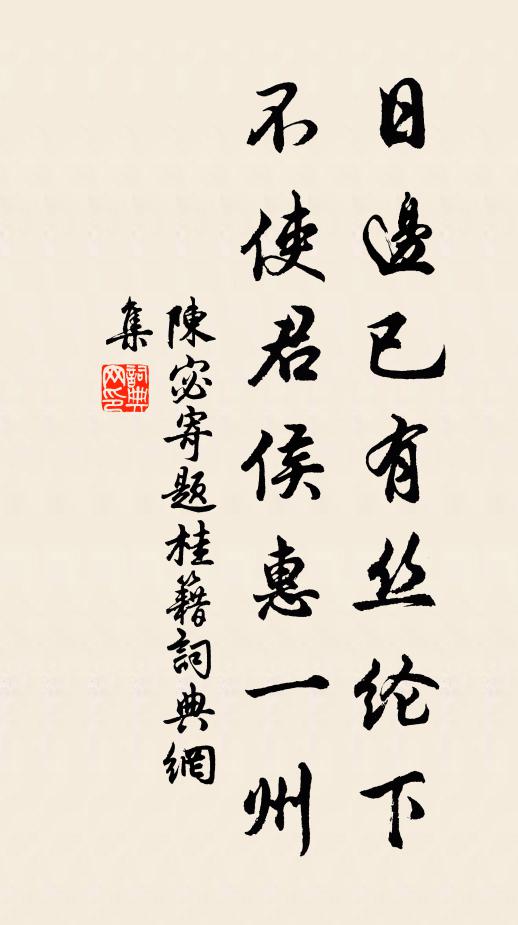 日邊已有丝纶下
不使君侯惠一州
陳宓寄题桂籍詞典網
集
詞典
网印